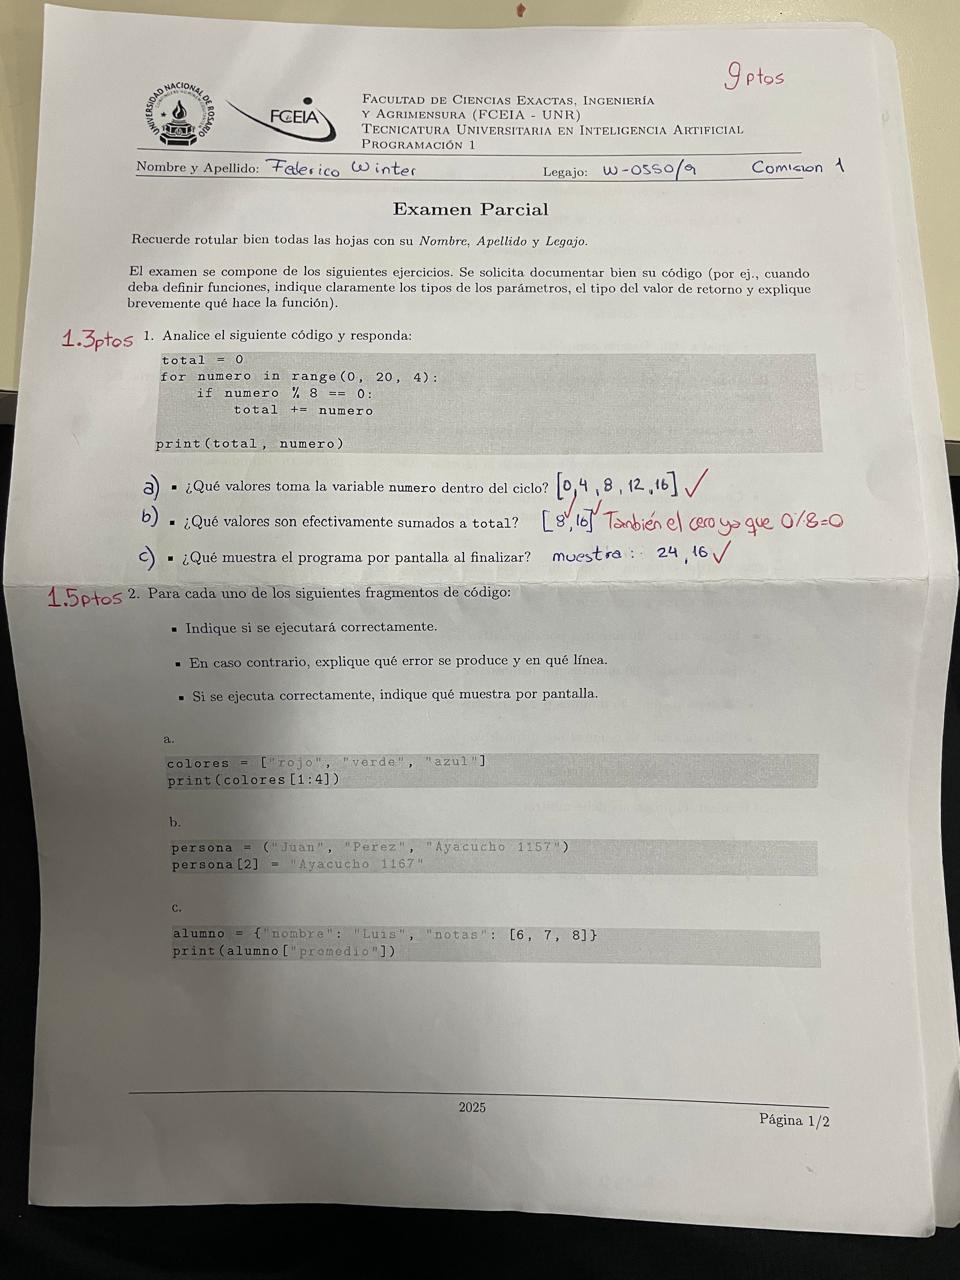 9ptos
UNIVERSIDAD NACIONAL DE ROSARIO
FCEIA
Facultad de Ciencias Exactas, Ingeniería
y Agrimensura (FCEIA - UNR)
Tecnicatura Universitaria en Inteligencia Artificial
Programación 1
Nombre y Apellido: Federico Winter Legajo: W-0550/9 Comision 1
Examen Parcial
Recuerde rotular bien todas las hojas con su Nombre, Apellido y Legajo.
El examen se compone de los siguientes ejercicios. Se solicita documentar bien su código (por ej., cuando
deba definir funciones, indique claramente los tipos de los parámetros, el tipo del valor de retorno y explique
brevemente qué hace la función).
1.3ptos 1. Analice el siguiente código y responda:
total = 0
for numero in range(0, 20, 4):
if numero % 8 == 0:
total += numero
print(total, numero)
a) ▪ ¿Qué valores toma la variable numero dentro del ciclo? [0,4,8,12,16] ✓
b) ▪ ¿Qué valores son efectivamente sumados a total? [8,16] También el cero ya que 0%8=0
c) ▪ ¿Qué muestra el programa por pantalla al finalizar? muestra: 24,16 ✓
1.5ptos 2. Para cada uno de los siguientes fragmentos de código:
▪ Indique si se ejecutará correctamente.
▪ En caso contrario, explique qué error se produce y en qué línea.
▪ Si se ejecuta correctamente, indique qué muestra por pantalla.
a.
colores = ["rojo", "verde", "azul"]
print(colores[1:4])
b.
persona = ("Juan", "Perez", "Ayacucho 1157")
persona[2] = "Ayacucho 1167"
c.
alumno = {"nombre": "Luis", "notas": [6, 7, 8]}
print(alumno["promedio"])
2025
Página 1/2